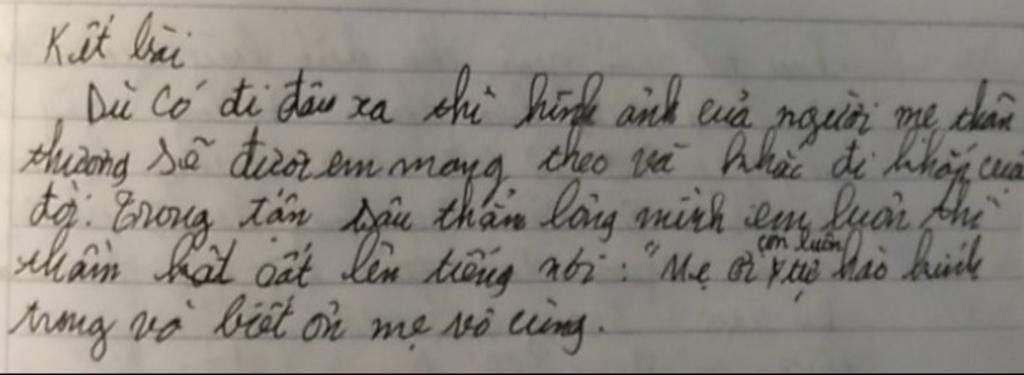 Kết bài
Dù có đi đâu xa thì hình ảnh của người mẹ thân
thương sẽ được em mang theo và khắc đi khắp cuả
đời. Trong tận sâu thẳm lòng mình em luôn thì
thầm hát cất lên tiếng nói: "Mẹ ơi con luôn tự hào kính
trọng và biết ơn mẹ vô cùng.